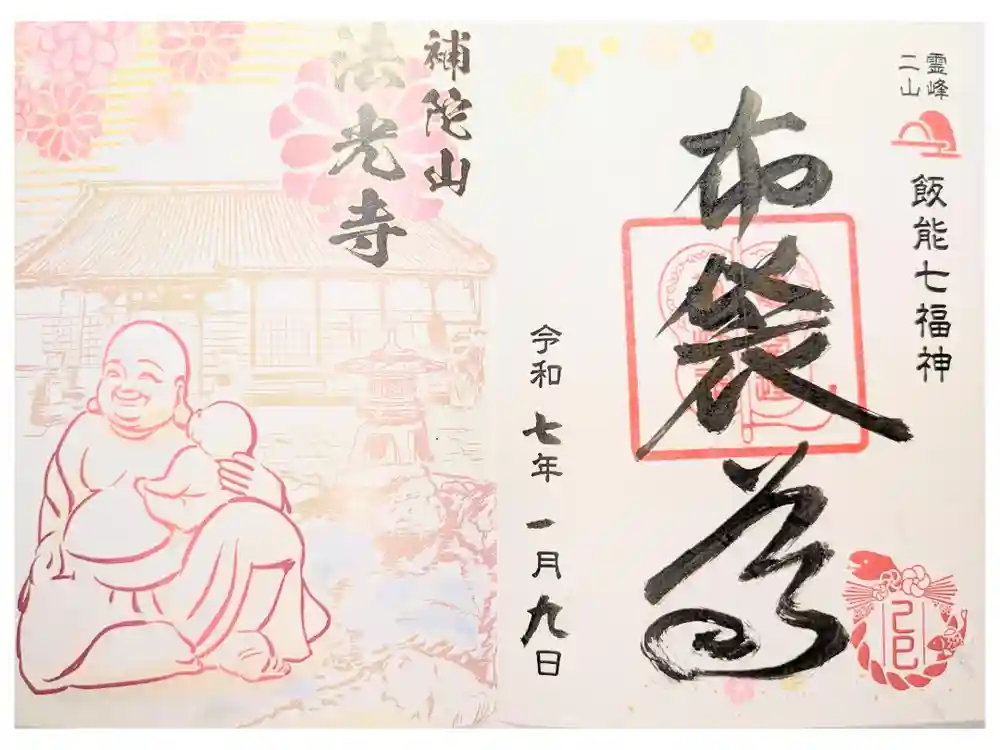 霊峰
二山
飯能七福神
布袋尊
己巳
令和七年一月九日
補陀山
法光寺